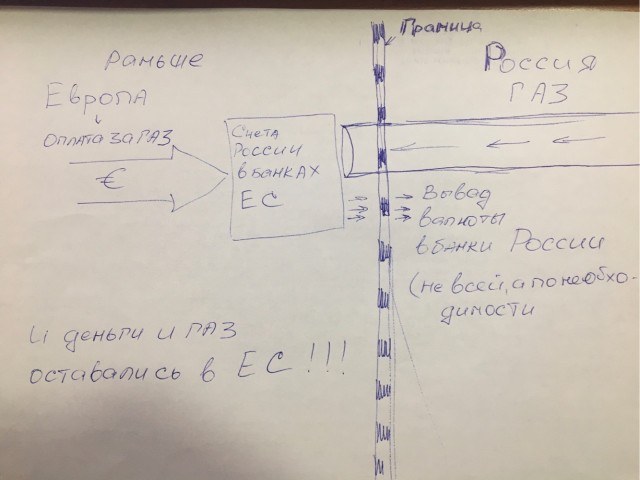 Раньше
Европа
оплата за газ
€
Счета
России
в банках
ЕС
Граница
Россия
ГАЗ
Вывад
валюты
в банки России
(не всей, а по необхо-
димости
И деньги и газ
оставались в ЕС!!!